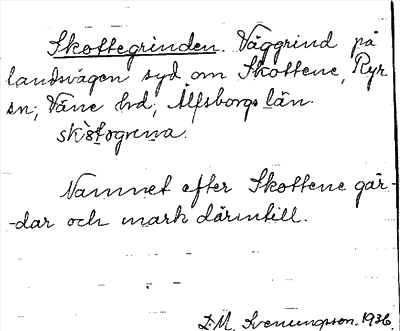 Skottegrinden. Väggrind på
landsvägen syd om Skottene, Ryr
sn; Väne hd; Älfsborgs län.
skòtogrena.
Namnet efter Skottene går-
-dar och mark därintill.
D. M. Svenungsson. 1936